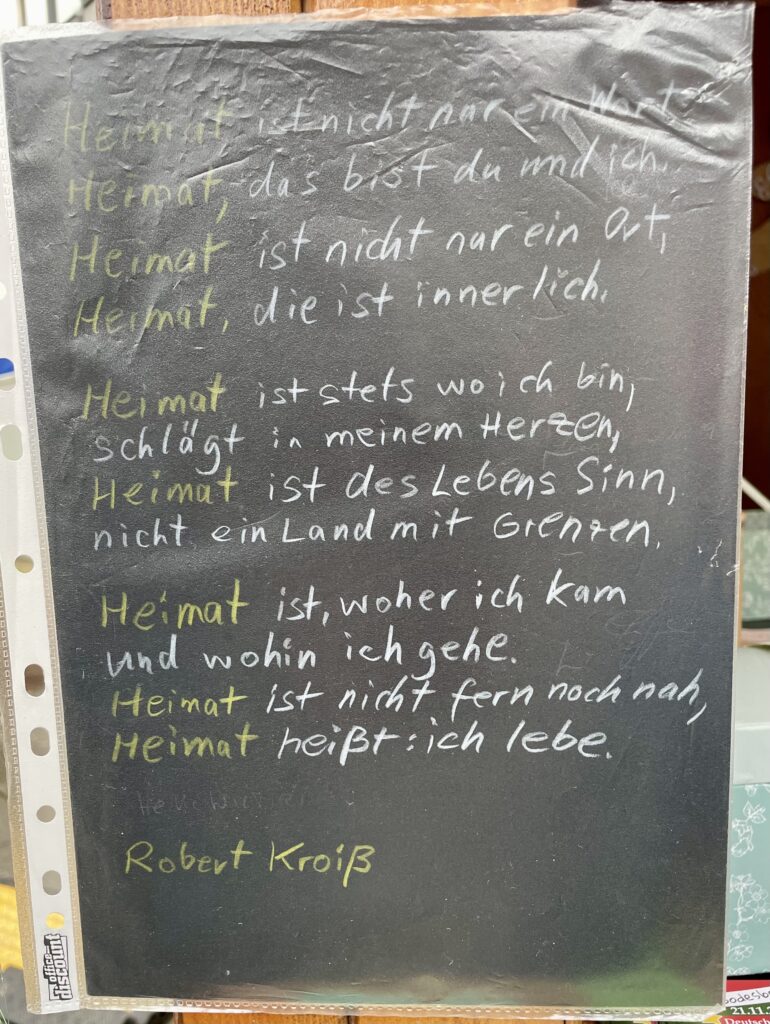 Heimat ist nicht nur ein Wort
Heimat, das bist du und ich.
Heimat ist nicht nur ein Ort,
Heimat, die ist innerlich.
Heimat ist stets wo ich bin,
schlägt in meinem Herzen,
Heimat ist des Lebens Sinn,
nicht ein Land mit Grenzen.
Heimat ist, woher ich kam
und wohin ich gehe.
Heimat ist nicht fern noch nah,
Heimat heißt: ich lebe.
Robert Kroiß
office-
discount
21.11.
Deutsch